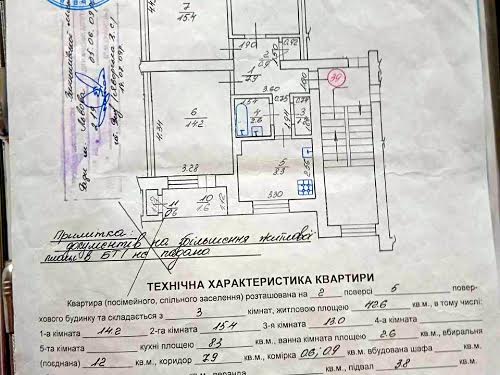 7
15.4
1.90
0.92
2
0.9
1
7.9
3.60
1.80
39
6
14.2
4.34
3.28
1.54
4
2.6
0.75
1.94
3
5
8.3
2.55
3.30
10
1.6
11
0.6
Примітка:
документів на збільшення житлової
площі в БТІ не подано
ТЕХНІЧНА ХАРАКТЕРИСТИКА КВАРТИРИ
Квартира (посімейного, спільного заселення) розташована на 2 поверсі 5 повер-
хового будинку та складається з 3 кімнат, житловою площею 42.6 кв.м., в тому числі:
1-а кімната 14.2 2-га кімната 15.4 3-я кімната 13.0 4-а кімната
5-та кімната кухні площею 8.3 кв.м., ванна кімната площею 2.6 кв.м., вбиральня
(поєднана) 1.2 кв.м., коридор 7.9 кв.м., комірка 0.6, 0.9 кв.м. вбудована шафа
кв.м., підвал 3.8 кв.м.